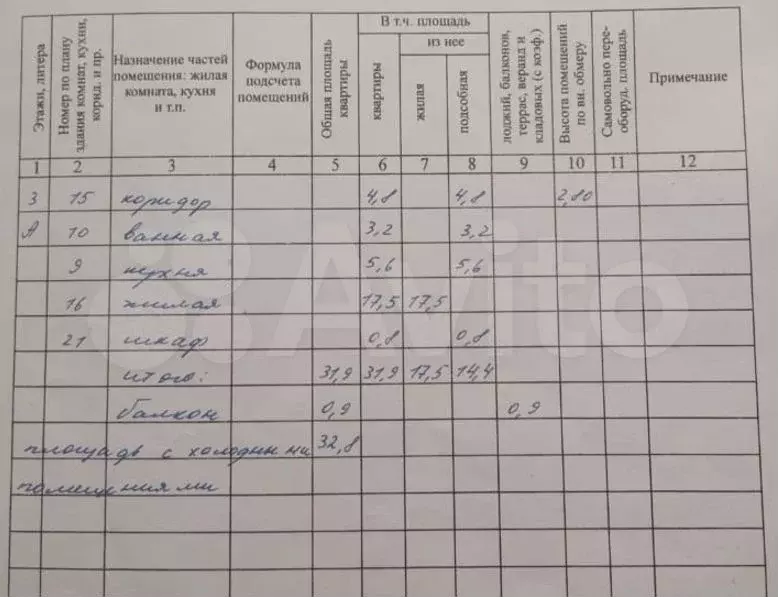 Этажи, литера
Номер по плану здания комнат, кухни, корид. и пр.
Назначение частей помещения: жилая комната, кухня и т.п.
Формула подсчета помещений
Общая площадь квартиры
В т.ч. площадь
квартиры
из нее
жилая
подсобная
лоджий, балконов, террас, веранд и кладовых (с коэф.)
Высота помещений по вн. обмеру
Самовольно пере- оборуд. площадь
Примечание
1 2 3 4 5 6 7 8 9 10 11 12
3 15 коридор 4,8 4,8 2,80
А 10 ванная 3,2 3,2
9 кухня 5,6 5,6
16 жилая 17,5 17,5
21 шкаф 0,8 0,8
итого: 31,9 31,9 17,5 14,4
балкон 0,9 0,9
площадь с холодными 32,8
помещениями
Avito